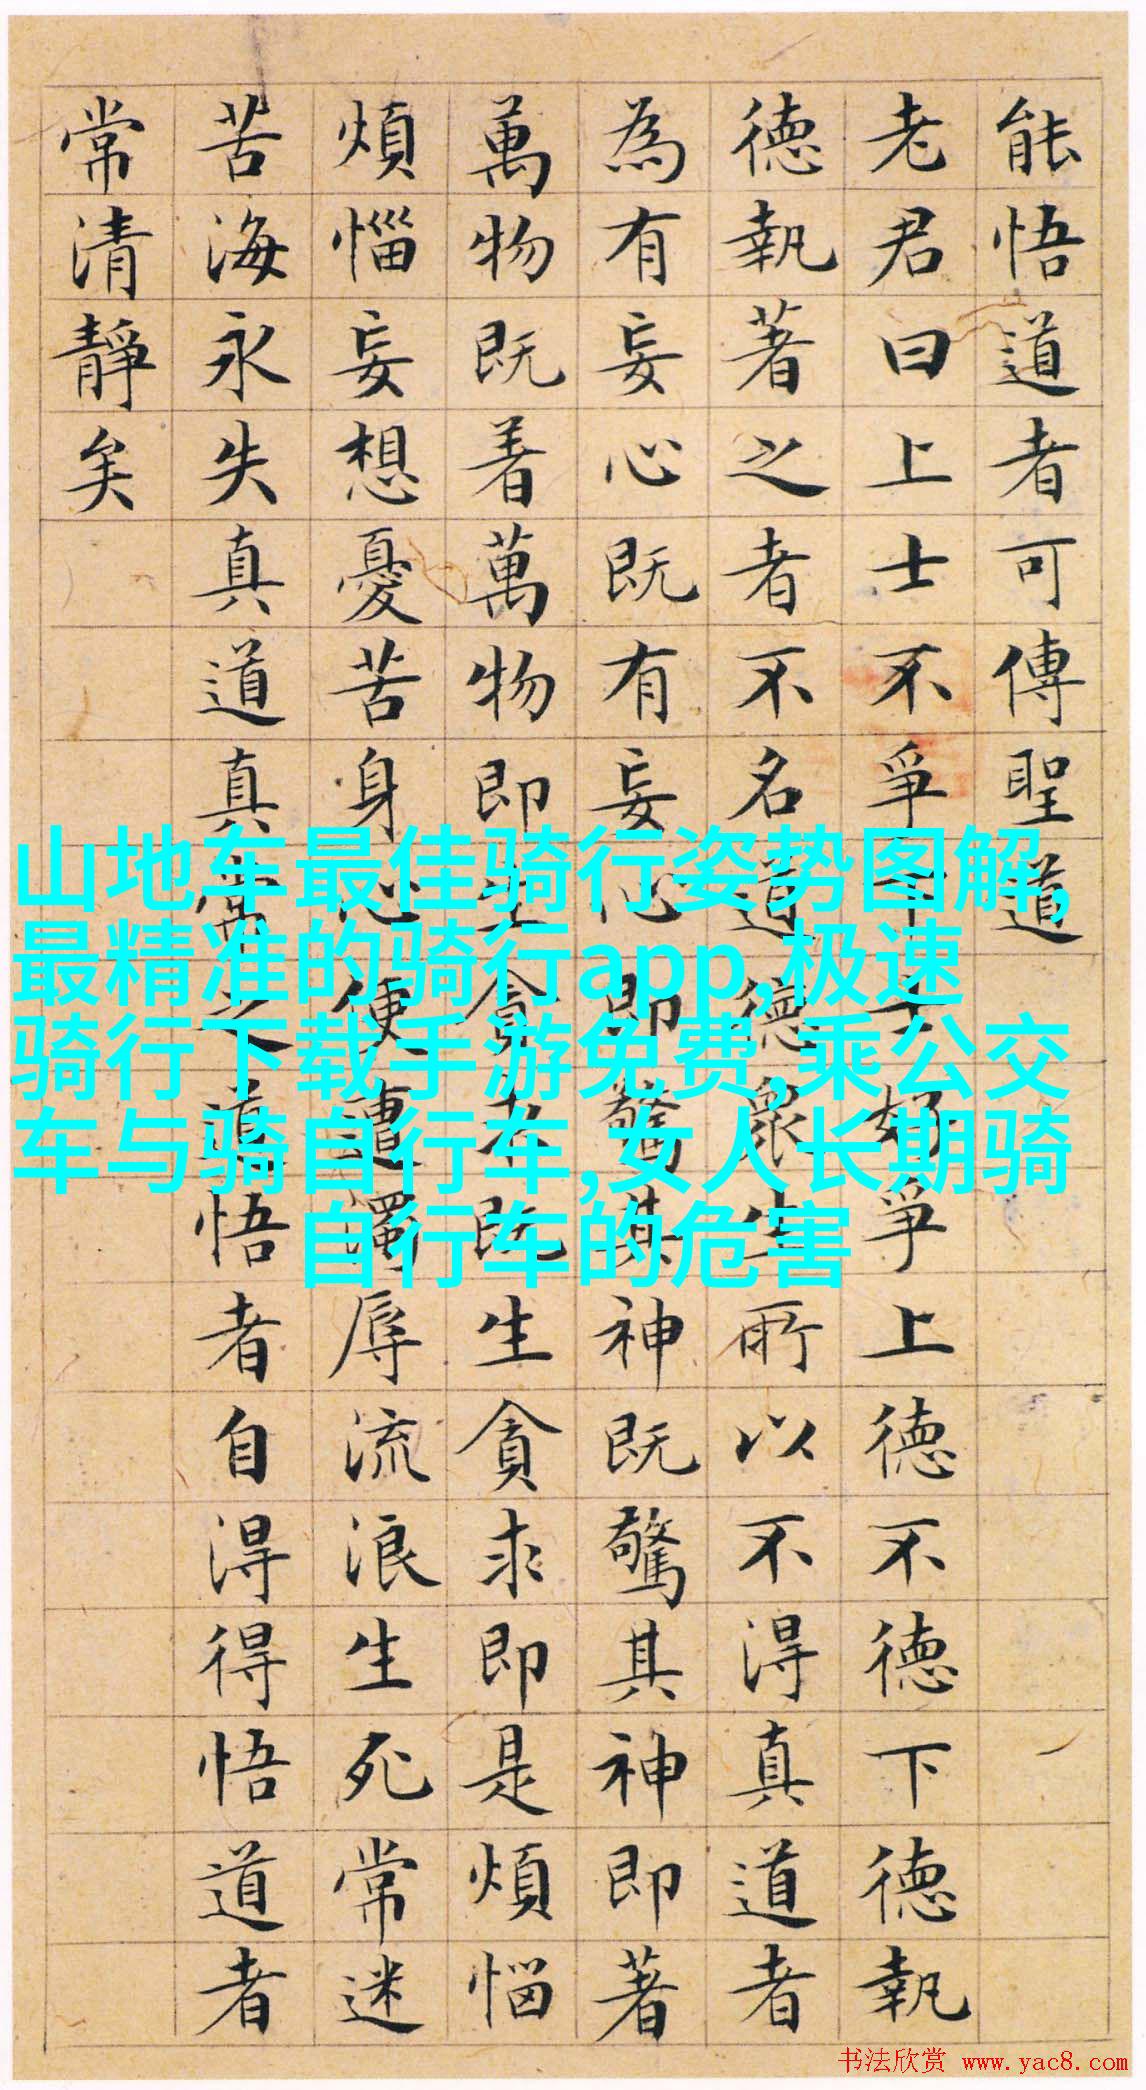 能悟道者可傳聖道
老君曰上士不爭下士好爭上德不德下德執
德執著之者不名道德衆生所以不得真道者
為有妄心既有妄心即驚其神既驚其神即著
萬物既着萬物即生貪求既生貪求即是煩惱
煩惱妄想憂苦身心便遭濁辱流浪生死常迷
苦海永失真道真常之道悟者自得得悟道者
常清靜矣
山地车最佳骑行姿势图解,
最精准的骑行app,极速
骑行下载手游免费,乘公交
车与骑自行车,女人长期骑
自行车的危害
书法欣赏 www.yac8.com